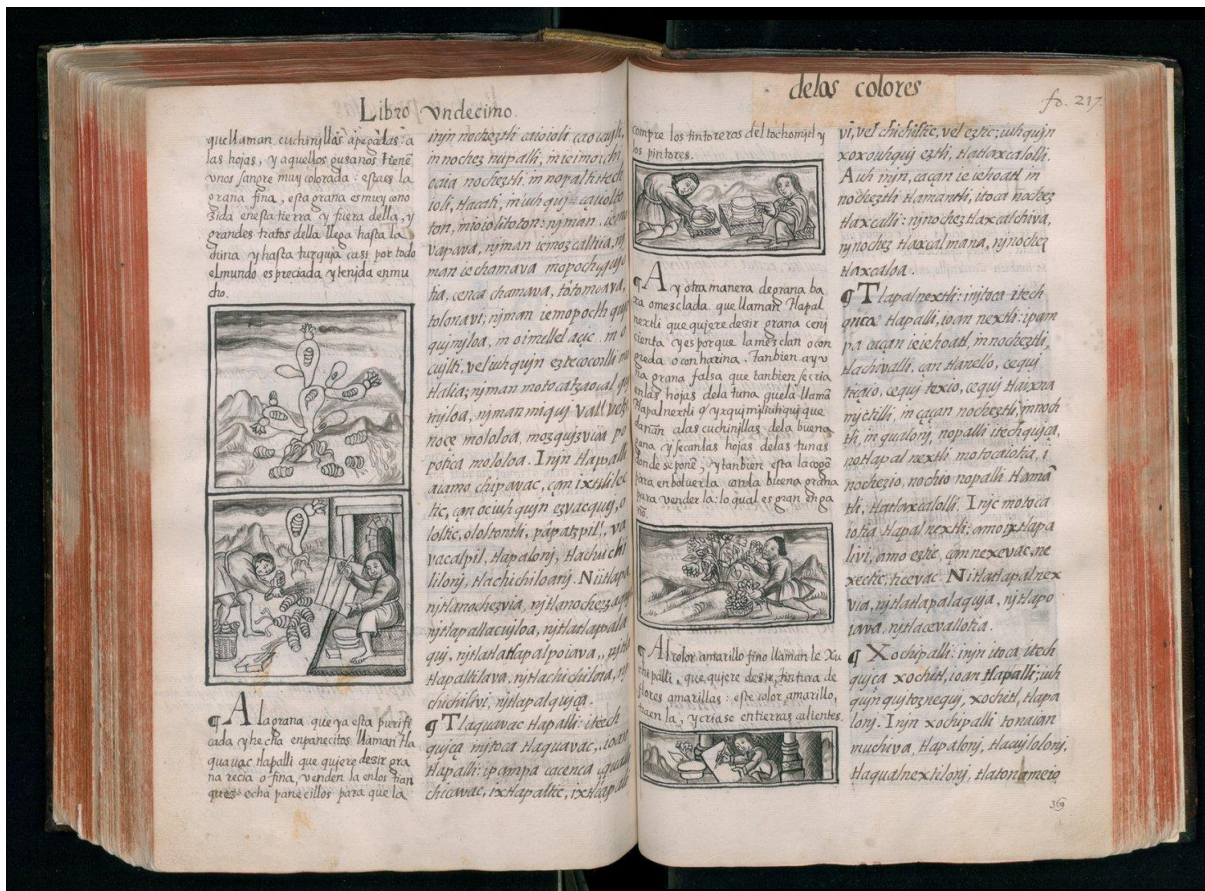 Libro vndecimo.
que llaman cuchinillas apegadas: a
las hojas, y aquellos gusanos tienē
vnos sangre muy colorada: esta es la
grana fina, esta grana es muy cono
zida en esta tierra y fuera della, y
grandes tratos della llega hasta la
china y hasta turquja casi por todo
el mundo es preciada y tenjda en mu
cho.
¶ A la grana que ya esta purifi
cada y hecha en panecitos llaman tla
quavac tlapalli que qujere desir gra
na recia o fina, venden la en los tian
quez echa panecillos para que la
injn nocheztli ca ioioli, ca ocuyli,
in nochez nupalli, in ie imoch
caia nocheztli, in nopaltitech
ioli, tlacati, in iuhquj caiuolto
ton, mioiolitoton: njman ie mo
vapava, njman ie mozcaltia, nj
man ie chamava mopochquj
tia, cenca chamava, totomoava,
tolonavi; njman ie mopochquj
qujmjloa, in oimellel acic in o
cujlti, vel iuhqujn eztecocolli
tlalia; njman motocatzaoalquj
mjloa, njman mjquj vallvetzi
noce mololoa, mozqujzvia po
potica mololoa. Injn tlapalli
aiamo chipavac, can ixtlilec
tic, can oc iuhqujn ezvacquj, o
loltic, ololontli, papatzpil, va
vacalpil, tlapalonj, tlachichi
lilonj, tlachichiloanj. Nitlapa
njtlanochezvia, njtlanochezzaqu
njtlapallacujloa, njtlatlappala
quj, njtlatlatlapalpoiava, njtla
tlapaltilava, njtlachichiloa, njt
chichilivi, njtlapalqujça.
¶ Tlaquavac tlapalli: itech
qujça injtoca tlaquavac, ioan
tlapalli: ipampa ca cenca, qualli
chicavac, ixtlapaltic, ixtlapalli
delas colores
fo. 217.
compre los tintoreros del tochomjtl y
los pintores.
¶ Ay otra manera de grana ba
xa o mezclada que llaman tlapal
nextli que qujere desir grana cenj
cienta y es por que la mezclan o con
greda o con harina. Tanbien ay v
na grana falsa que tanbien se cria
en las hojas dela tuna que la llamā
tlapalnextli que
dañan a las cuchinjllas dela buena
grana y secan las hojas de las tunas
donde se ponē, y tanbien esta la cogē
para enbolverla con la buena grana
para vender la: lo qual es gran enga
ño.
¶ Al color amarillo fino llaman le Xu
chipalli, que qujere desir, tintura de
flores amarillas: este color amarillo,
traen la, y criase en tierras calientes.
vi, vel chichiltic, vel eztic; iuhqujn
xoxouhquj eztli, tlatlaxcalolli.
Auh injn, caçan ie iehoatl in
nocheztli tlamantli, itoca nochez
tlaxcalli: njnocheztlaxcalchiva,
njnochez tlaxcalmana, njnochez
tlaxcaloa.
¶ Tlapalnextli: injtoca itech
qujça tlapalli, ioan nextli: ipam
pa caçan ie iehoatl, in nocheztli,
tlachovalli, can tlanello, cequj
tiçaio, cequj texio, cequj tlaixna
mjctilli, in caçan nocheztli, in noch
tli, in qualonj, nopalli itech qujça,
no tlapal nextli motocaiotia, i
nochezio, nochio nopalli tlamā
tli, tlatlaxcalolli. Injc motoca
iotia tlapal nextli: amo ixtlapa
livi, amo eztic, çan nexevac, ne
xectic, ticevac. Nitlatlapalnex
via, njtlatlapalaquja, njtlapo
iava, njtlacevallotia.
¶ Xochipalli: injn itoca itech
qujça xochitl, ioan tlapalli; iuh
qujn qujtoznequj, xochitl, tlapa
lonj. Injn xochipalli tonaian
muchiva, tlapalonj, tlacujlolonj,
tlaqualnextilonj, tlatonameio
369